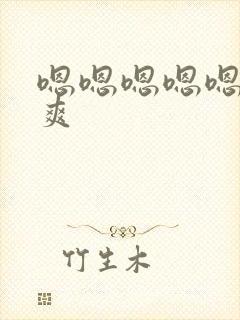 嗯嗯嗯嗯嗯
爽
竹生木